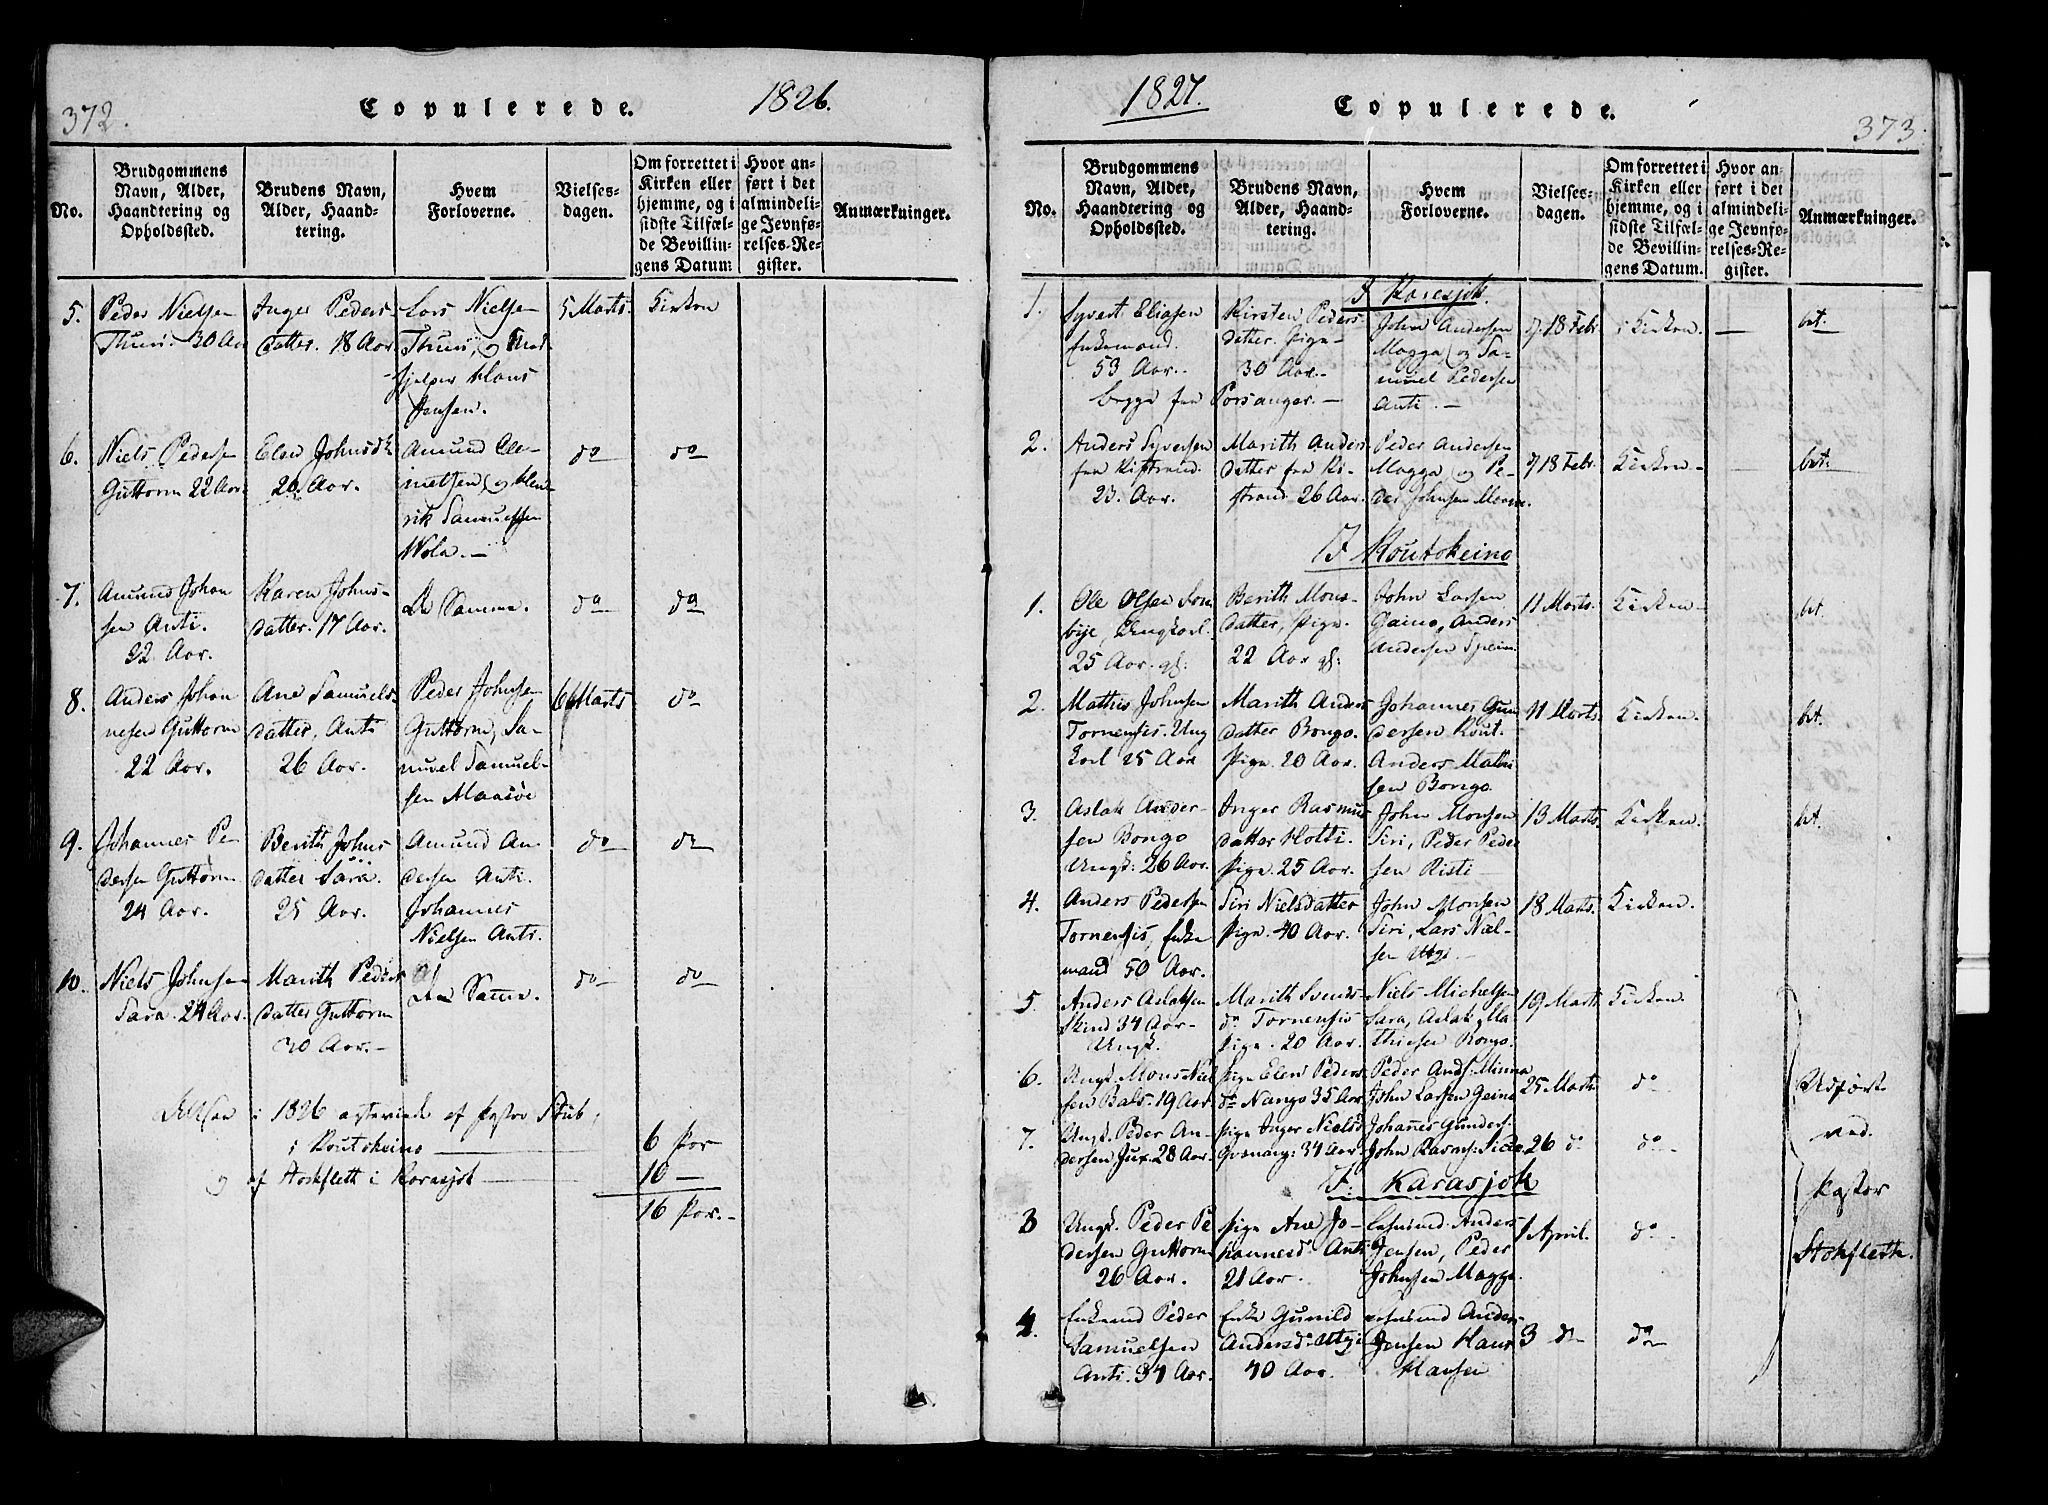 372.
Copulerede.
1826.
No.
Brudgommens
Navn, Alder,
Haandtering og
Opholdssted.
Brudens Navn,
Alder, Haand-
tering.
Hvem
Forloverne.
Vielses-
dagen.
Om forrettet i
Kirken eller
hjemme, og i
sidste Tilfæl-
de Bevillin-
gens Datum:
Hvor an-
ført i det
almindeli-
ge Jevnfø-
relses-Re-
gister.
Anmærkninger.
5.
Peder Nielsen
Thuri. 30 Aar
Inger Peders
datter. 18 Aar.
Lars Nielsen
Thuri, og
fjelper Hans
Jensen.
5 Marts.
Kirken
6.
Niels Pedersen
Guttorm 22 Aar.
Elen Johnsdr
20 Aar.
Amund Cle-
metsen, og Hen-
rik Samuelsen
Wola.—
do
do
7.
Amund Johan
sen Anti.
22 Aar.
Karen Johns-
datter. 17 Aar.
De Samme.
do
do
8.
Anders Johan
nesen Guttorm
22 Aar.
Ane Samuels-
datter, Anti
26 Aar.
Peder Johnsen
Guttorm, Sa-
muel Samuel-
sen Maasöe
6 Marts
do
9.
Johannes Pe-
dersen Guttorm
24 Aar.
Berith Johns
datter Sara.
25 Aar.
Amund An-
dersen Anti.
Johannes
Nielsen Anti.
do
do
10.
Niels Johnsen
Sara. 24 Aar.
Marith Peders
datter Guttorm
30 Aar.—
De Samme.
do
do
i 1826 af Pastor Stub,
i Koutokeino
6 Par
og af Stokfleth i Karasjok
10 —
16 Par.—
1827.
Copulerede.
373.
No.
Brudgommens
Navn, Alder,
Haandtering og
Opholdssted.
Brudens Navn,
Alder, Haand-
tering.
Hvem
Forloverne.
Vielses-
dagen.
Om forrettet i
Kirken eller
hjemme, og i
sidste Tilfæl-
de Bevillin-
gens Datum.
Hvor an-
ført i det
almindeli-
ge Jevnfø-
relses-Re-
gister.
Anmærkninger.
I Karasjok.
1.
Syvert Eliasen
Enkemand.
53 Aar.
begge fra Porsanger.—
Kirsten Peders-
datter. Pige—
30 Aar.—
John Andersen
Magga, og Sa-
muel Pedersen
Anti.—
18 Febr.
i Kirken.
—
bet.
2.
Anders Syversen
fra Kistrand.
23. Aar.
Marith Anders
datter fra Ki-
strand 26 Aar.
Peder Andersen
Magga, og Pe-
der Johnsen
18 Febr.
Kirken—
—
bet.
I Koutokeino
1.
Ole Olsen Som
bye, Ungkarl.
25 Aar. gl:
Berith Mons-
datter, Pige.
22 Aar gl:
John Larsen
Gaino, Anders
Andersen Spein.
11 Marts.
Kirken—
bet.
2.
Mathis Johnsen
Tornensis. Ung
karl 25 Aar
Marith Anders
datter Bongo.
Pige. 20 Aar.
Johannes Gun
dersen Kout.
Anders Mathi
sen Bongo
11 Marts.
Kirken.
bet.
3.
Aslak Ander-
sen Bongo
Ungk: 26 Aar.
Inger Rasmus
datter Hotti.
Pige. 25 Aar.
John Monsen
Siri, Peder Peder
sen Risti—
13 Marts.
Kirken.
bet.
4.
Anders Pedersen
Tornensis, Enke
mand 50 Aar.
Siri Nielsdatter
Pige. 40 Aar.
John Monsen
Siri, Lars Niel-
sen Utzi.—
18 Marts.
Kirken.
5
Anders Aslaksen
Skind 34 Aar—
Ungk.
Marith Svends-
dr Tornensis
Pige. 20 Aar.
Niels Michelsen
Sara, Aslak Ma
thiesen Bongo.
19 Marts
Kirken.
6.
Ungk. Mons Niel
sen Bals. 19 Aar
Pige Elen Peders
dr Nango 35 Aar
Peder Ands: Minna
John Larsen Geino
25 Marts.
do
7.
Ungk. Peder An-
dersen Jux. 28 Aar.
Pige Inger Nielsd
34 Aar.
Johanes Gunders.
John Rasms:
26 do
do
I Karasjok
3
Ungk. Peder Pe
dersen Guttorm
26 Aar.
Pige Ane Jo-
hannesd. Anti
21 Aar.
Anders
Jensen, Peder
Johnsen Magga.
1 April.
do
4.
Enkemd Peder
Samuelsen
Anti. 34 Aar.
Enke Gunild
Andersd. Utzi
40 Aar.
Anders
Jensen Hans
Hansen
3 do
do
Udført
ved.
Pastor
Stokfleth.